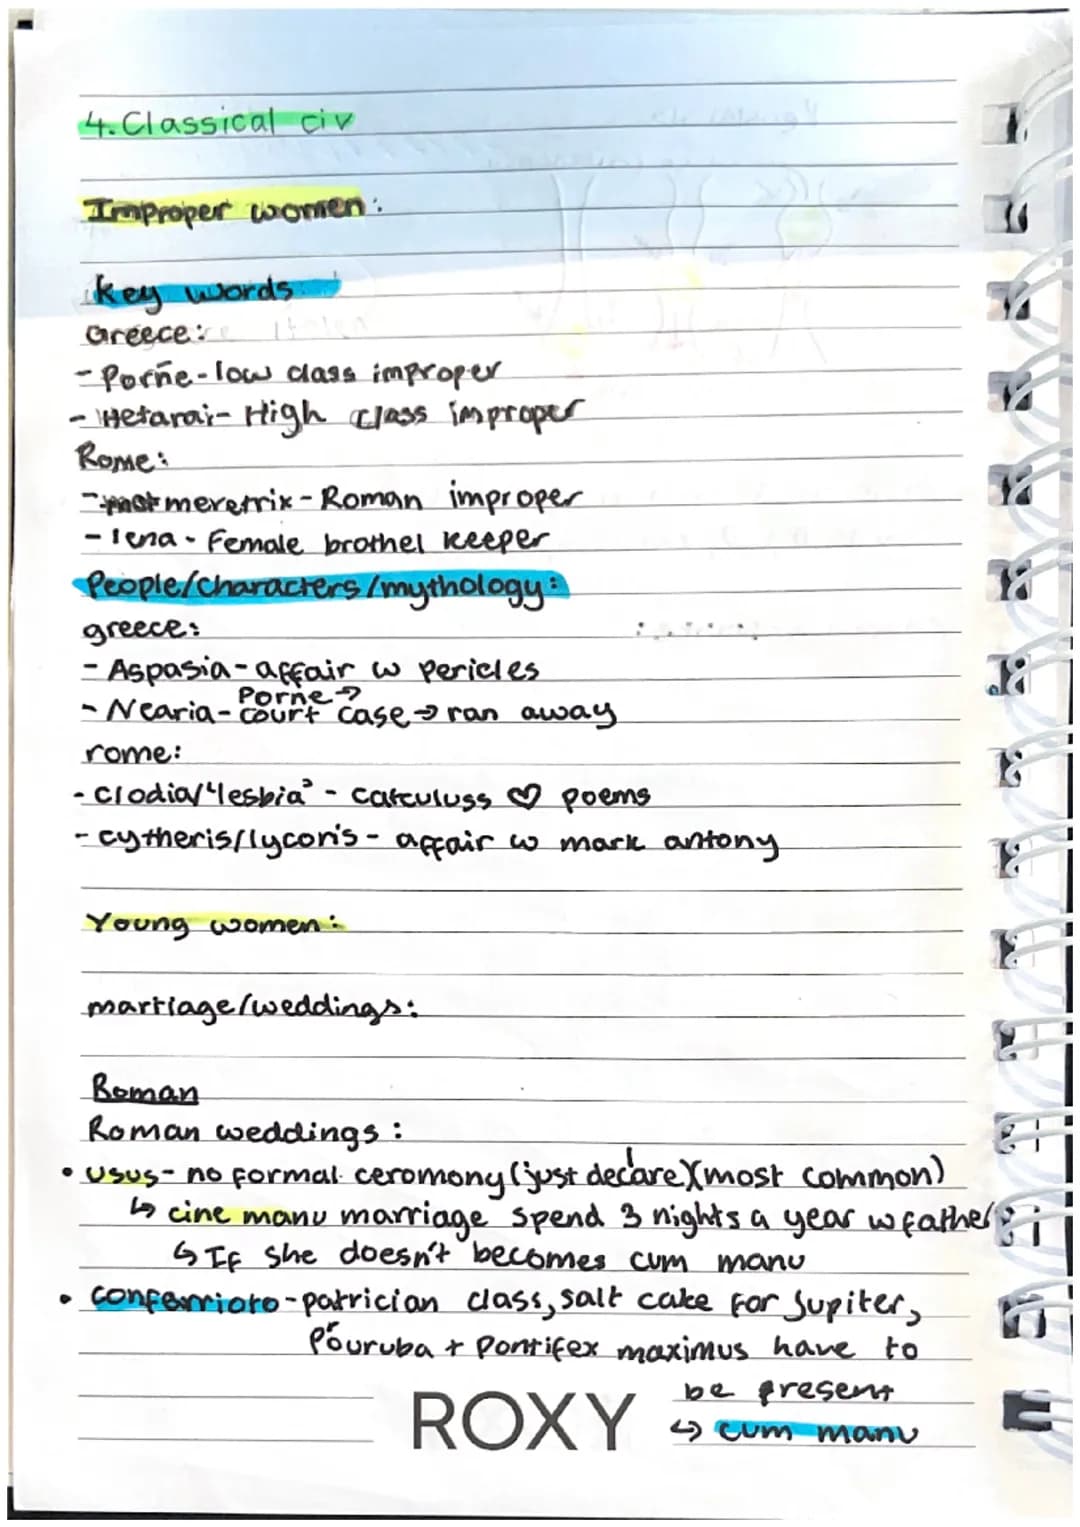 4. Classical civ
Improper women:
key words
Greece:
- Porne - low class improper
- Hetarai - High class improper
Rome:
- meretrix - Roman improper
- lena - Female brothel keeper
People/characters/mythology:
greece:
- Aspasia - affair w Pericles
Porne →
- Nearia - court case → ran away
rome:
- clodia/"lesbia" - catculuss ♡ poems
- cytheris/lycoris - affair w mark antony
Young women:
marriage/weddings:
Roman
Roman weddings:
• usus - no formal ceromony (just declare) (most common)
↳ cine manu marriage spend 3 nights a year w father
↳ If she doesn't becomes cum manu
• confarrioto - patrician class, salt cake for Jupiter,
Pouruba + Pontifex maximus have to
be present
↳ cum manu
ROXY